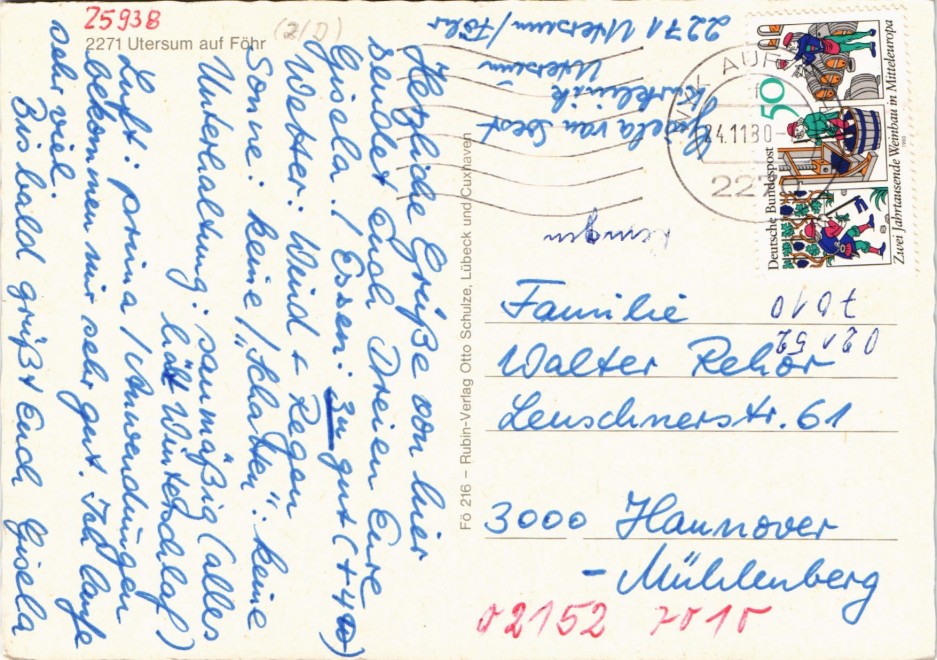 25938
2271 Utersum auf Föhr
(2/D)
Gisela van Gest
Kurklinik
Utersum
2271 Utersum/Föhr
Herzliche Grüße von hier
sendet Euch Dreien Eure
Gisela. / Essen: zu gut (+4 )
Wetter: Wind + Regen
Sonne: keine / "Schatten": keine
Unterhaltung: saumäßig (alles
hält Winterschlaf)
Luft: prima / Anwendungen
bekommen mir sehr gut. Ich laufe
sehr viel.
Bis bald grüßt Euch Gisela
Fö 216 – Rubin-Verlag Otto Schulze, Lübeck und Cuxhaven
AUF
24.11.80
227
Deutsche Bundespost
50
Zwei Jahrtausende Weinbau in Mitteleuropa
1980
Kempen
02152
7010
Familie
Walter Rehör
Leuschnerstr. 61
3000 Hannover
- Mühlenberg
02152 7010